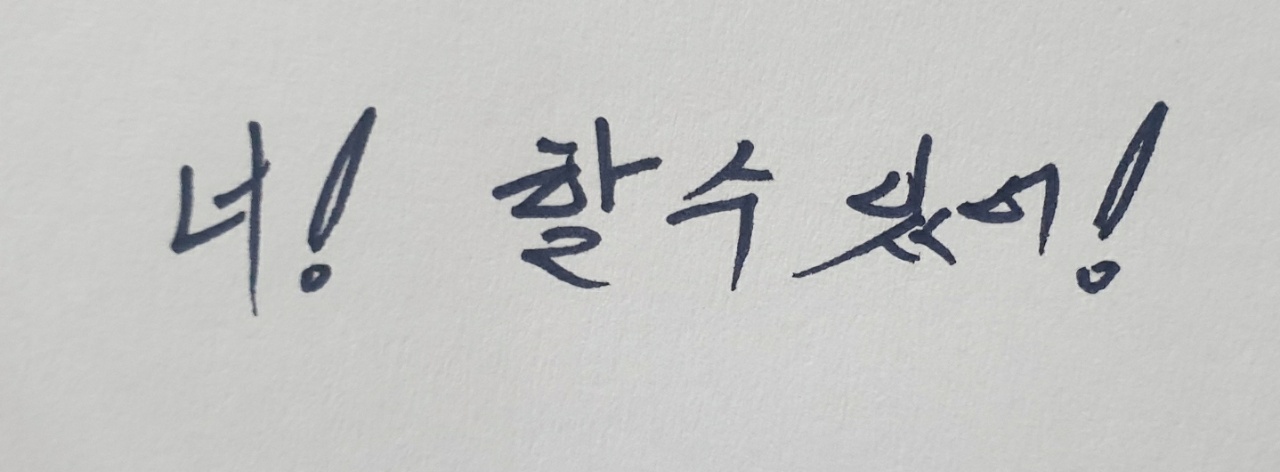 너! 할 수 있어!